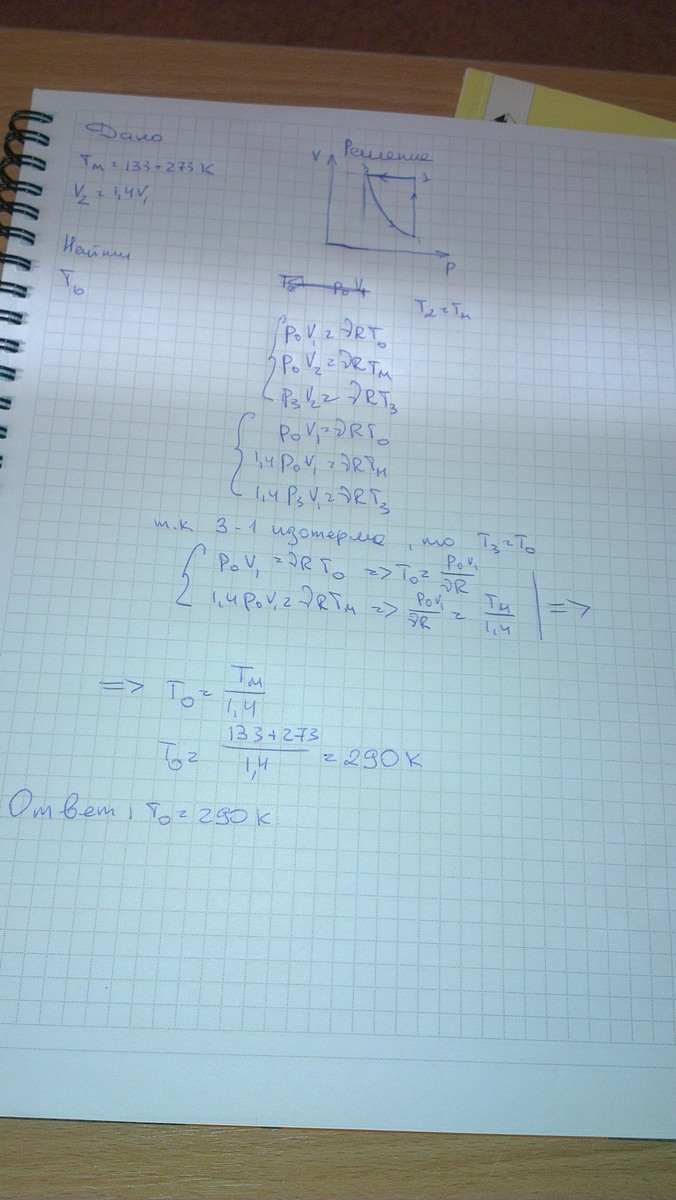 Дано
Tм = 133 + 273 К
V₂ = 1,4V₁
Найти
T₀
Решение
V
3
2
P
T₂ = Tм
{ P₀V₁ = νRT₀
P₀V₂ = νRTм
P₃V₂ = νRT₃
{ P₀V₁ = νRT₀
1,4P₀V₁ = νRTм
1,4P₃V₁ = νRT₃
т.к 3-1 изотерма, то T₃ = T₀
{ P₀V₁ = νRT₀ => T₀ = P₀V₁/νR
1,4P₀V₁ = νRTм => P₀V₁/νR = Tм/1,4 | =>
=> T₀ = Tм/1,4
T₀ = 133+273/1,4 = 290 К
Ответ, T₀ = 290 К